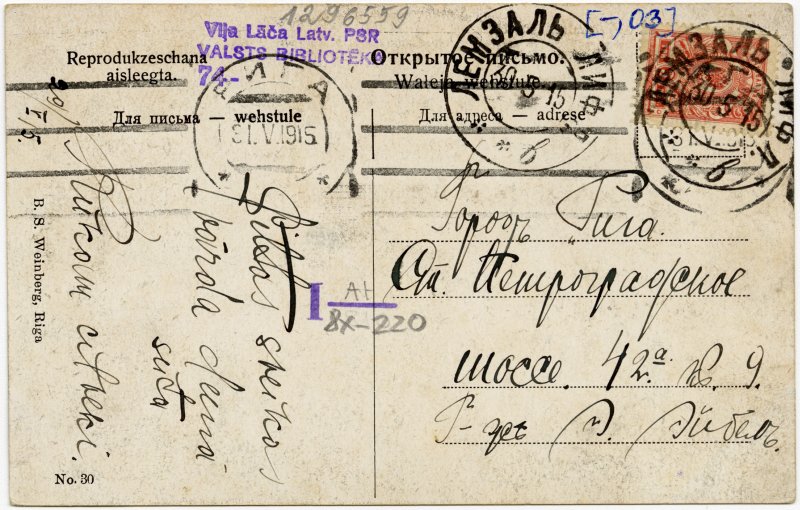 1296559
[-,03]
Viļa Lāča Latv. PSR
VALSTS BIBLIOTĒKA
74.-
Reprodukzeschana
aisleegta.
Открытое письмо.
Walejа wehstule
Для письма — wehstule
Для адреса — adrese
РИГА
31.V.1915
ЛЕМЗАЛЬ ЛИФЛ.
30 5 15
в
ЛЕМЗАЛЬ ЛИФЛ.
30 5 15
в
31.V.1915
29/V 15.
sveikas
vārdа
suta
I АН
8x-220
Городъ Рига.
Ст. Петроградское
шоссе. 42а кв. 9.
Г-ну Э. Эйбелъ.
B. S. Weinberg, Riga
No. 30